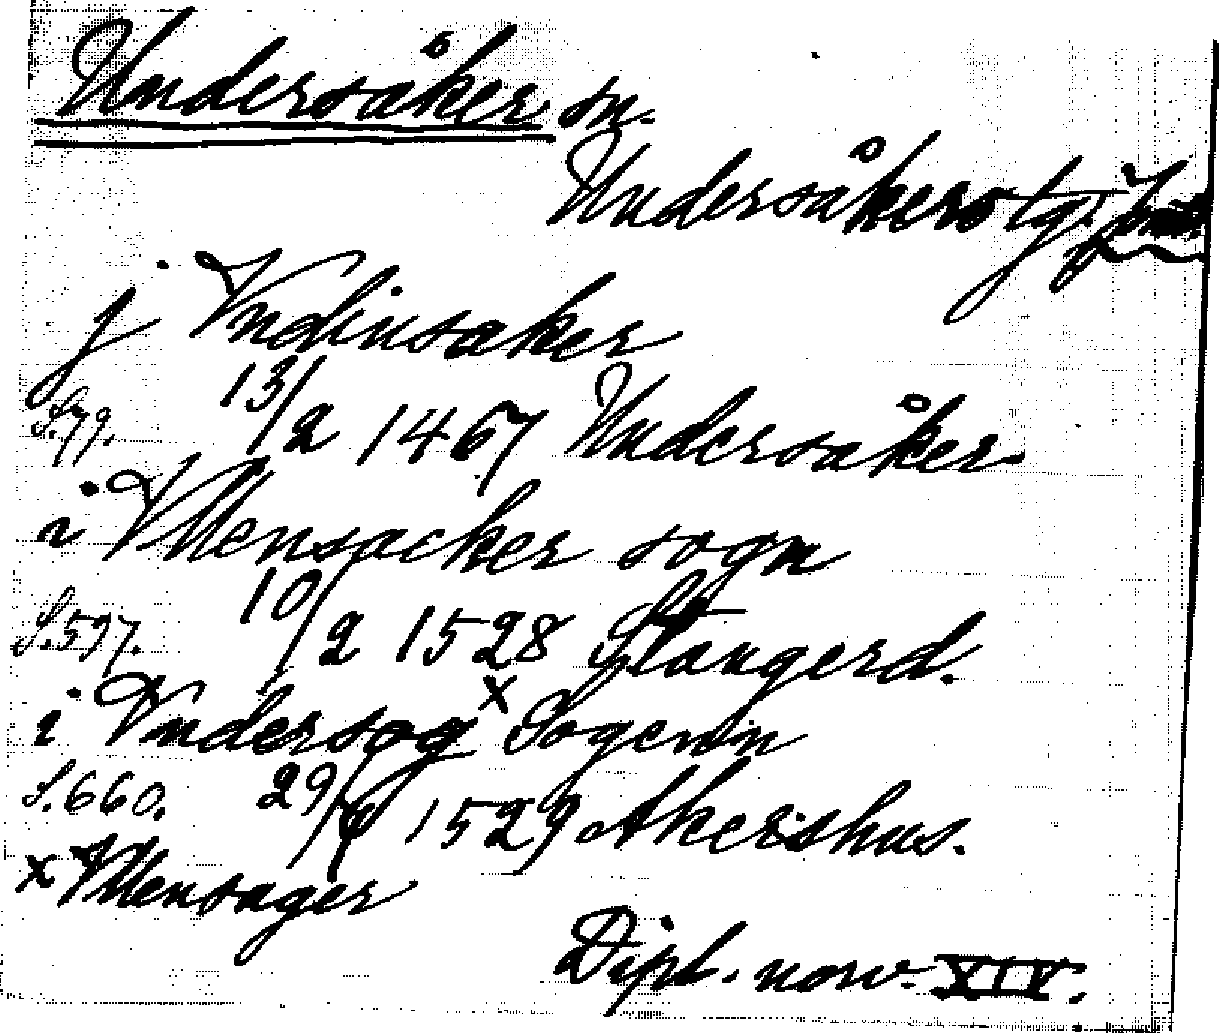 Undersåker sn.
Undersåkers tg.
j Vndinsaker
S.79. 13/2 1467 Undersåker.
i Vllensacker sogn
S.597. 10/2 1528 Stangerd.
i Vndersog x Sogenn
S.660. 29/6 1529 Akershus.
x Vllensager
Dipl. norv. XIV.